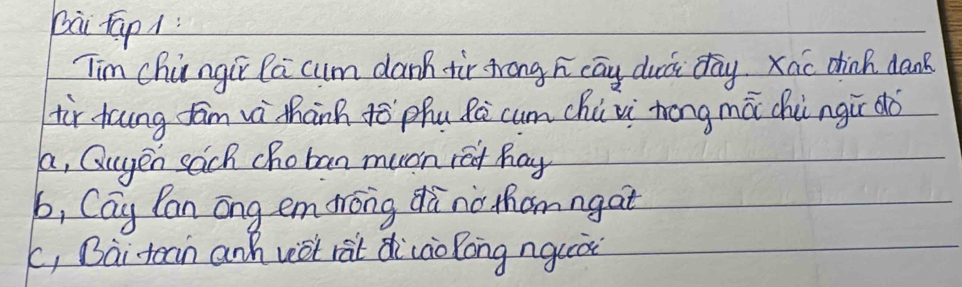 Bài tập 1:
Tìm chủ ngữ là cụm danh từ trong các câu dưới đây. Xác định danh
từ trung tâm và thành tố phụ là cụm chủ vị trong mỗi chủ ngữ đó
a, Quyển sách cho bạn mượn rất hay
b, Cây lan ông em trồng đã nở thơm ngát
c, Bài toán anh viết rất đi vào lòng người